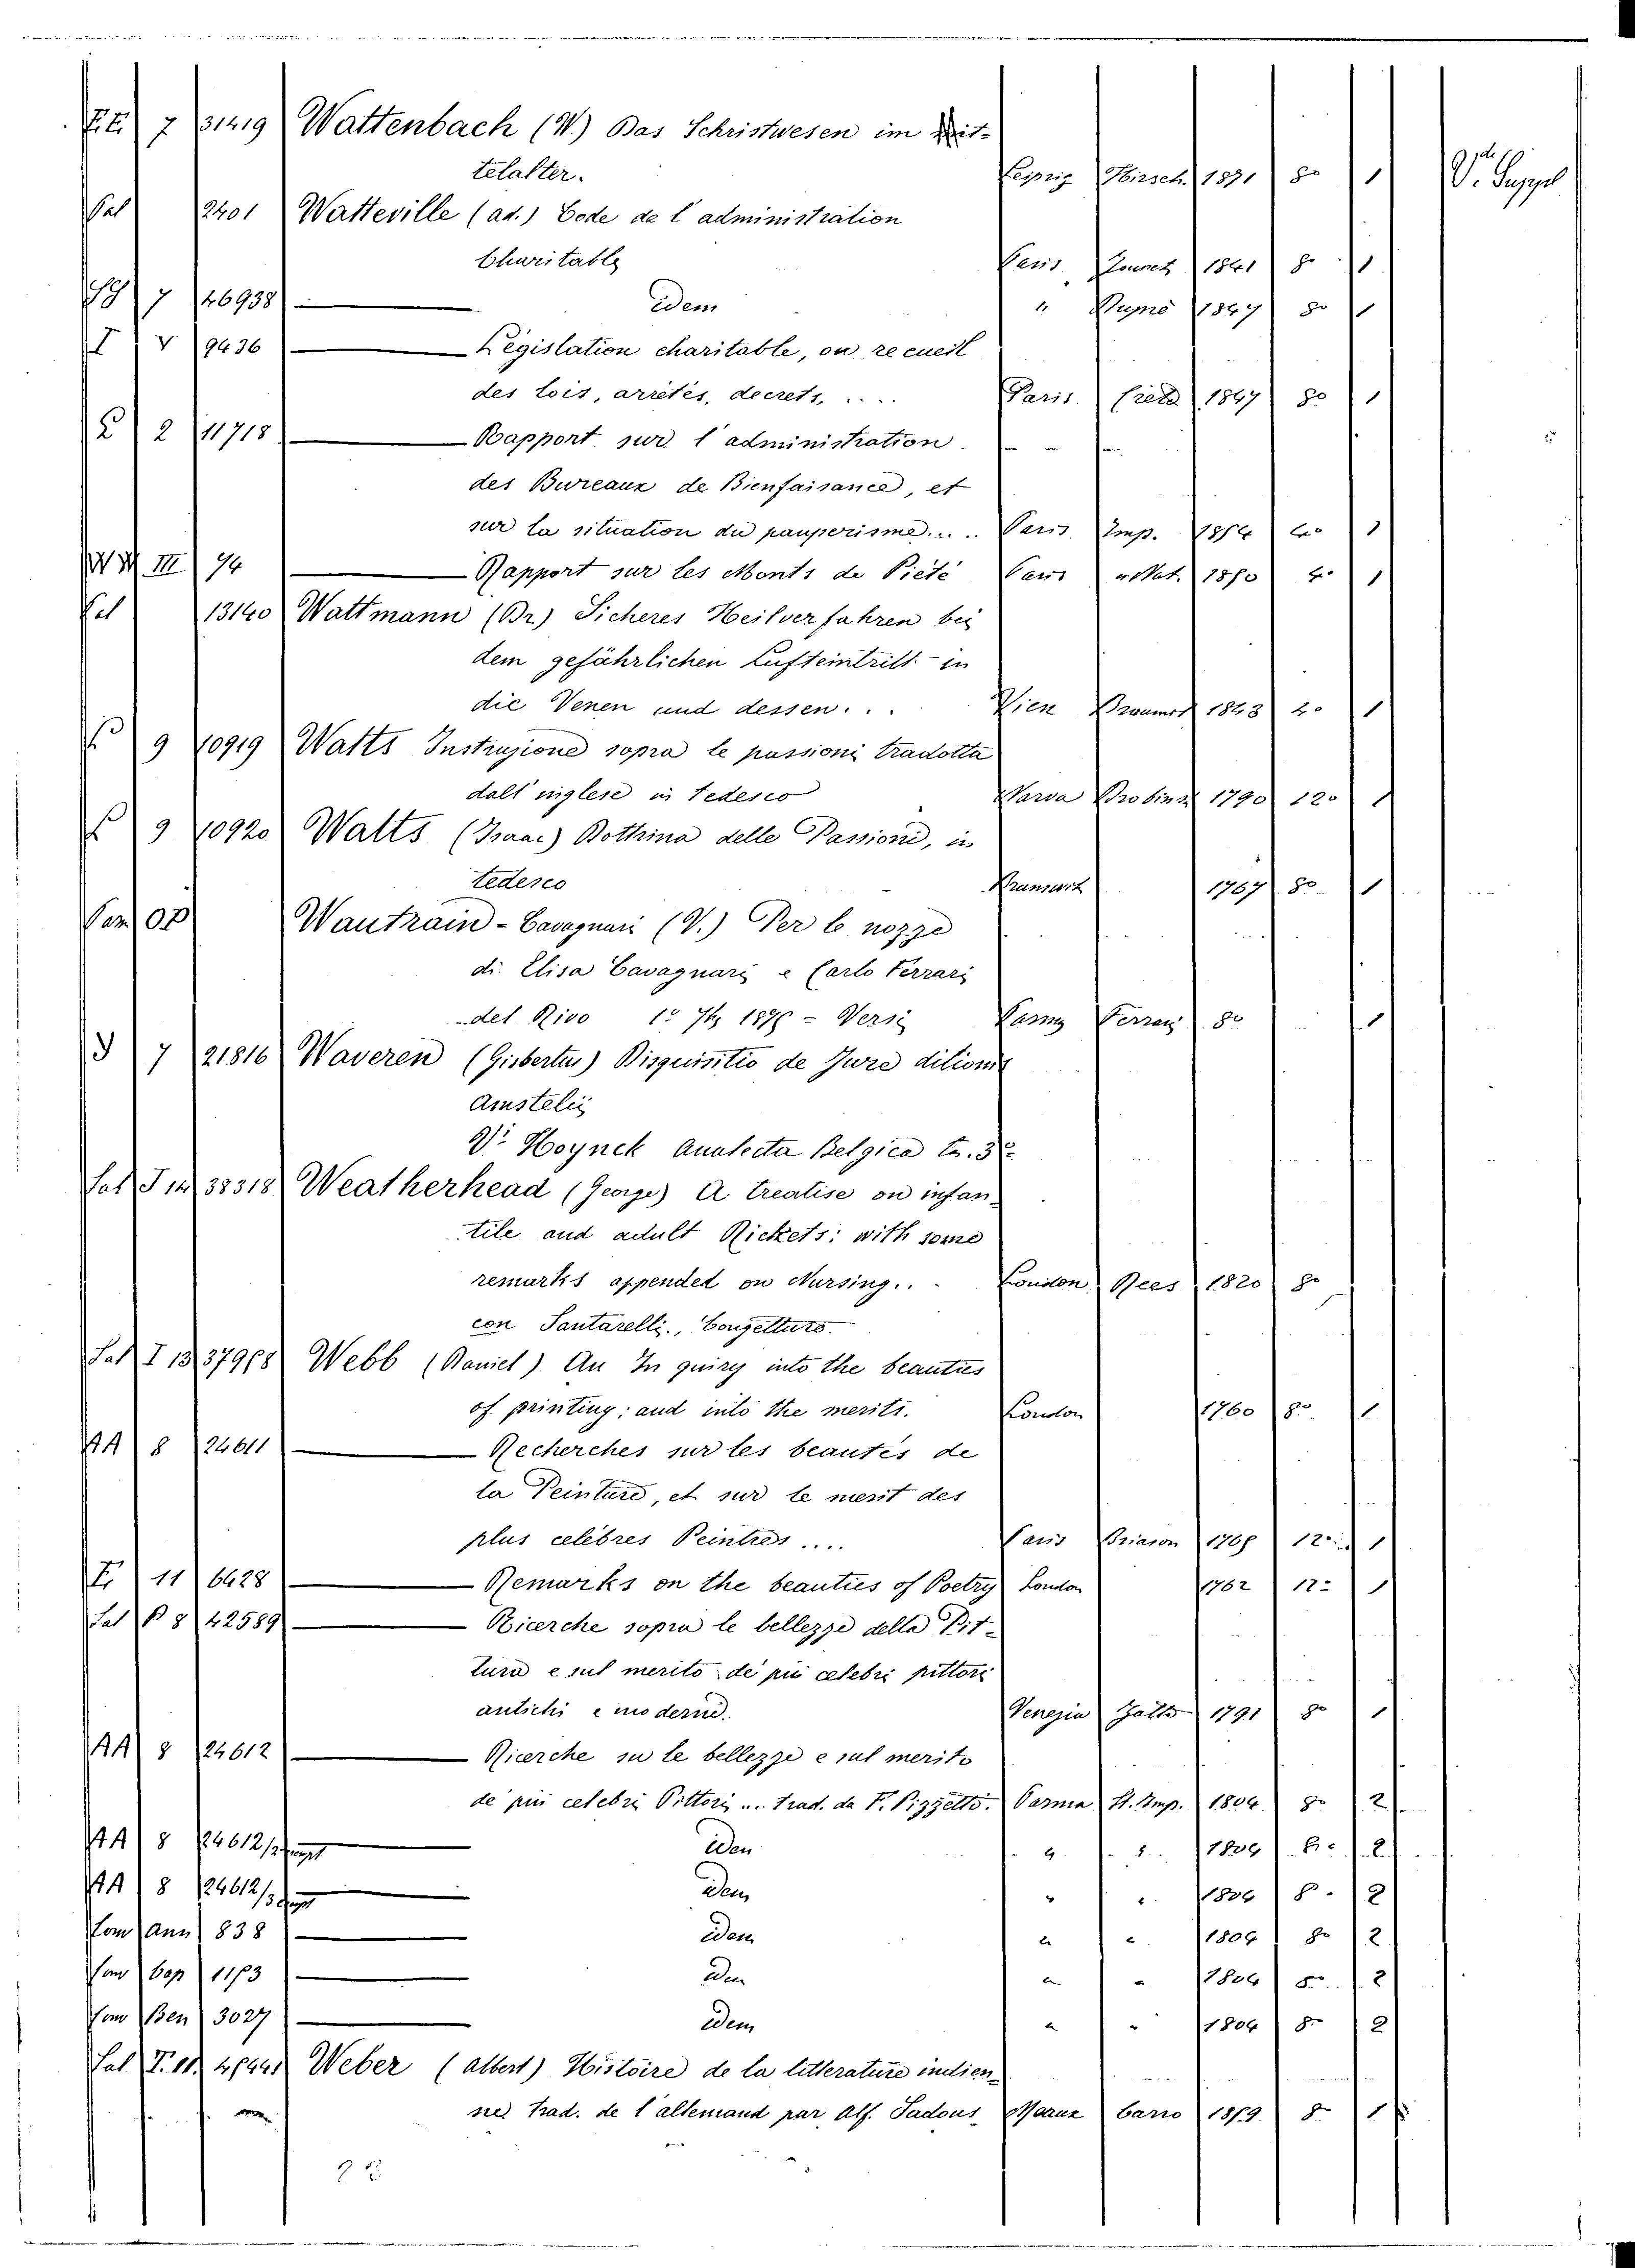 7 31419 Wattenbach (W.) Das Schristwesen im Mit-
telalter. Leipzig Hirsch. 1871 8º 1 V. Suppl
Sal 2401 Watteville (ad.) Code de l'administration
Charitable Paris 1841 8º 1
7 46938 idem " 1847 8º 1
I V 9436 Législation charitable, ou recueil
des lois, arretés, decrets, .... Paris 1847 8º 1
2 11718 Rapport sur l'administration
des Bureaux de Bienfaisance, et
sur la situation du pauperisme.... Paris Imp. 1854 4º 1
III 94 Rapport sur les Monts de Pieté Paris 1850 4º 1
Sal 13140 Wattmann (Br) Sicheres Heilverfahren bei
dem gefährlichen Lufteintritt in
die Venen und dessen... Wien 1843 1
9 10919 Watts Instruzione sopra le passioni tradotta
dall'inglese in tedesco 1790 12º 1
9 10920 Watts (Isaac) Dottrina delle Passioni, in
tedesco 1767 8º 1
Wautrain-Cavagnari (V.) Per le nozze
di Elisa Cavagnari e Carlo Ferrari
del Rivo Versi Parma Ferrari 8º 1
7 21816 Waveren (Gisbertus) Disquisitio de Jure ditionis
Amstelii
V. Hoynck Analecta Belgica
Sal 38318 Weatherhead (George) A treatise on infan-
tile and adult Rickets: with some
remarks appended on Nursing.. London Rees 1820 8º
con Santarelli., Congetture.
Sal I 13 37958 Webb (Daniel) An Inquiry into the beauties
of printing: and into the merits. London 1760 8º 1
AA 8 24611 Recherches sur les beautés de
la Peinture, et sur le merit des
plus celèbres Peintres.... Paris Briason 1765 12º 1
11 6628 Remarks on the beauties of Poetry London 1762 12º 1
Sal P 8 42589 Ricerche sopra le bellezze della Pit-
tura e sul merito de piú celebri pittori
antichi e moderni. Venezia Zatta 1791 8º 1
AA 8 24612 Ricerche su le bellezze e sul merito
de piú celebri Pittori ... trad. da F. Pizzetti. Parma St. Imp. 1804 8º 2
AA 8 24612/2 idem 1804 8º 2
AA 8 24612/3 idem 1804 8º 2
Ann 838 idem 1804 8º 2
Cap 1153 idem 1804 8º 2
Ben 3027 idem 1804 8º 2
Sal Weber (Albert) Histoire de la litterature indien-
ne trad. de l'allemand par Alf. Sadous 1859 8º 1